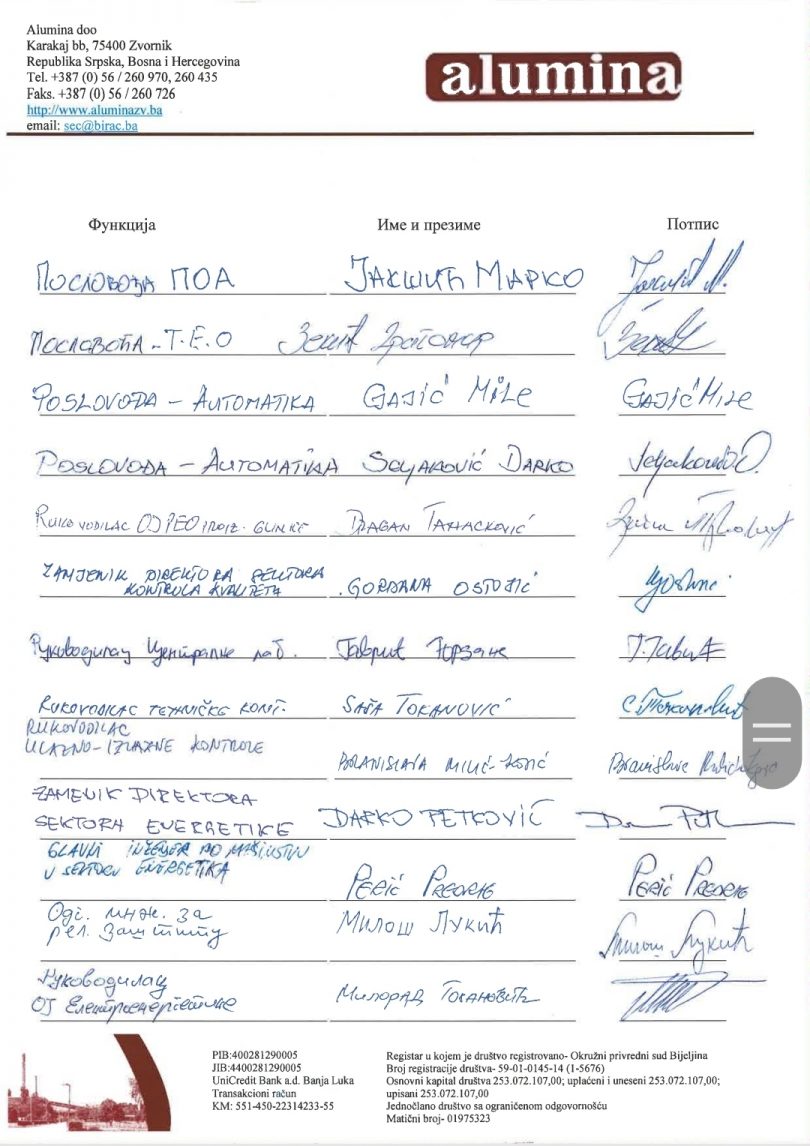 Alumina doo
Karakaj bb, 75400 Zvornik
Republika Srpska, Bosna i Hercegovina
Tel. +387 (0) 56 / 260 970, 260 435
Faks. +387 (0) 56 / 260 726
http://www.aluminazv.ba
email: sec@birac.ba
alumina
Функција Име и презиме Потпис
Пословођа ПОА ЈАКШИЋ МАРКО
Пословођа - Т.Е.О Зекић
POSLOVOĐA - AUTOMATIKA GAJIĆ MILE GAJIĆ MILE
POSLOVOĐA - AUTOMATIKA DARKO
RUKOVODILAC DRAGAN
ZAMJENIK DIREKTORA SEKTORA
KONTROLA KVALITETA GORDANA OSTOJIĆ
Руководилац Централне лаб. Гаврић
RUKOVODILAC TEHNIČKE KONT. SAŠA TOKANOVIĆ
RUKOVODILAC
ULAZNO-IZLAZNE KONTROLE
BRANISLAVA
ZAMENIK DIREKTORA
SEKTORA ENERGETIKE DARKO PETKOVIĆ
GLAVNI INŽENJER PO MAŠINSTVU
U SEKTORU ENERGETIKA
PERIĆ PREDRAG PERIĆ PREDRAG
Одг. инж. за МИЛОШ ЛУКИЋ Милош Лукић
рел. заштиту
Руководилац
ОЈ Електроенергетике Милорад Токановић
PIB:400281290005
JIB:4400281290005
UniCredit Bank a.d. Banja Luka
Transakcioni račun
KM: 551-450-22314233-55
Registar u kojem je društvo registrovano- Okružni privredni sud Bijeljina
Broj registracije društva- 59-01-0145-14 (1-5676)
Osnovni kapital društva 253.072.107,00; uplaćeni i uneseni 253.072.107,00;
upisani 253.072.107,00
Jednočlano društvo sa ograničenom odgovornošću
Matični broj- 01975323